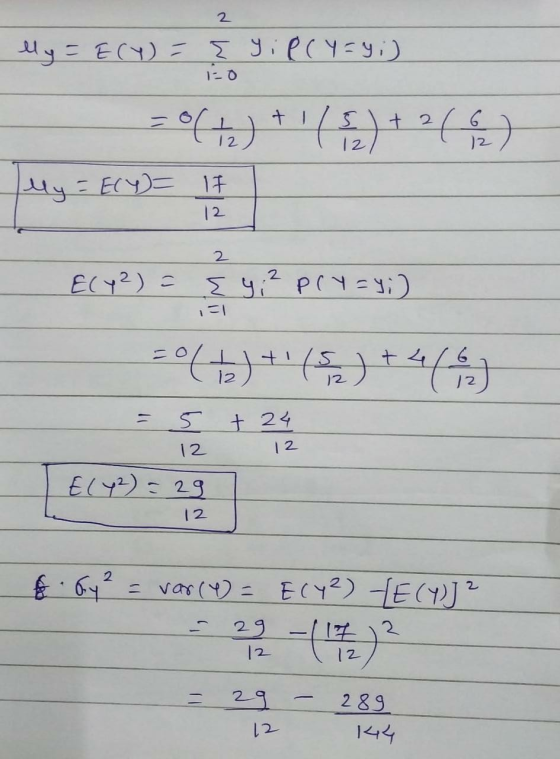 μy = E(Y) = 2Σi=0 yi P(Y=yi)
= 0(1/12) + 1(5/12) + 2(6/12)
μy = E(Y) = 17/12
E(Y²) = 2Σi=1 yi² P(Y=yi)
= 0(1/12) + 1(5/12) + 4(6/12)
= 5/12 + 24/12
E(Y²) = 29/12
· σy² = var(Y) = E(Y²) - [E(Y)]²
= 29/12 - (17/12)²
= 29/12 - 289/144